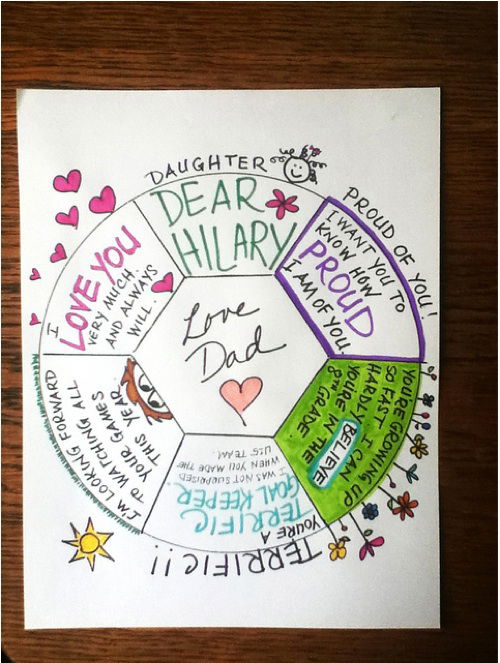 DAUGHTER
DEAR
HILARY
PROUD OF YOU!
I WANT YOU TO
KNOW HOW
PROUD
I AM OF YOU.
YOU'RE GROWING UP
SO FAST. I CAN
HARDLY BELIEVE
YOU'RE IN THE
8TH GRADE
TERRIFIC!!
YOU'RE A
TERRIFIC
GOAL KEEPER.
I WAS NOT SURPRISED
WHEN YOU MADE THE
U.S. TEAM.
I'M LOOKING FORWARD
TO WATCHING ALL
YOUR GAMES
THIS YEAR
I
LOVE YOU
VERY MUCH
AND ALWAYS
WILL.
Love
Dad